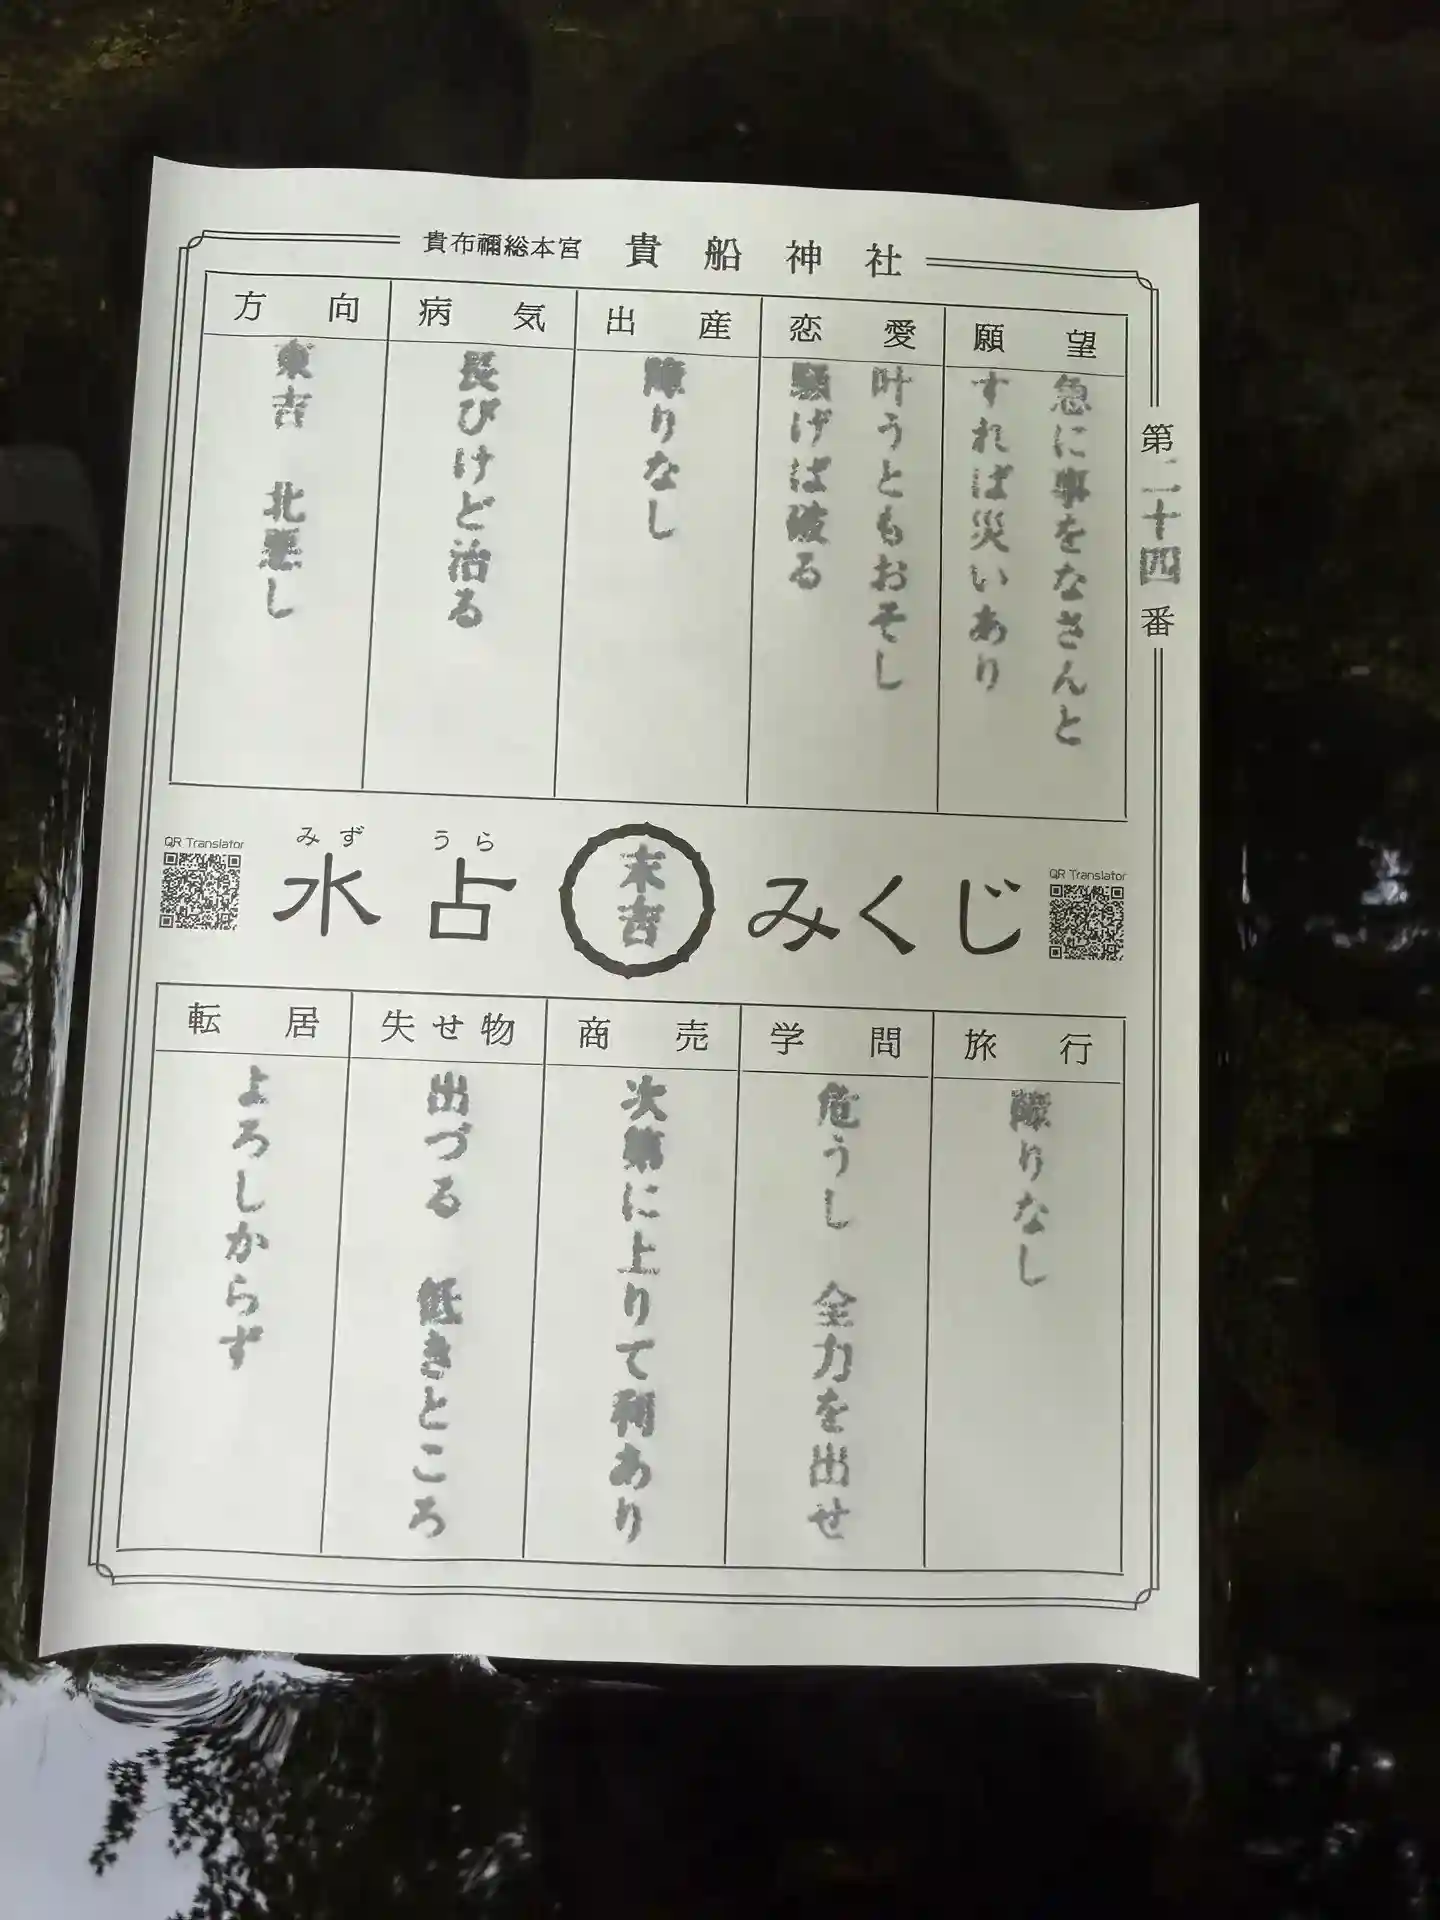 貴布禰総本宮 貴船神社
第二十四番
願望
急に事をなさんと
すれば災いあり
恋愛
叶うともおそし
騒げば破る
出産
障りなし
病気
長びけど治る
方向
東吉 北悪し
QR Translator
みずうら
水占
末吉
みくじ
QR Translator
旅行
障りなし
学問
危うし 全力を出せ
商売
次第に上りて利あり
失せ物
出づる 低きところ
転居
よろしからず